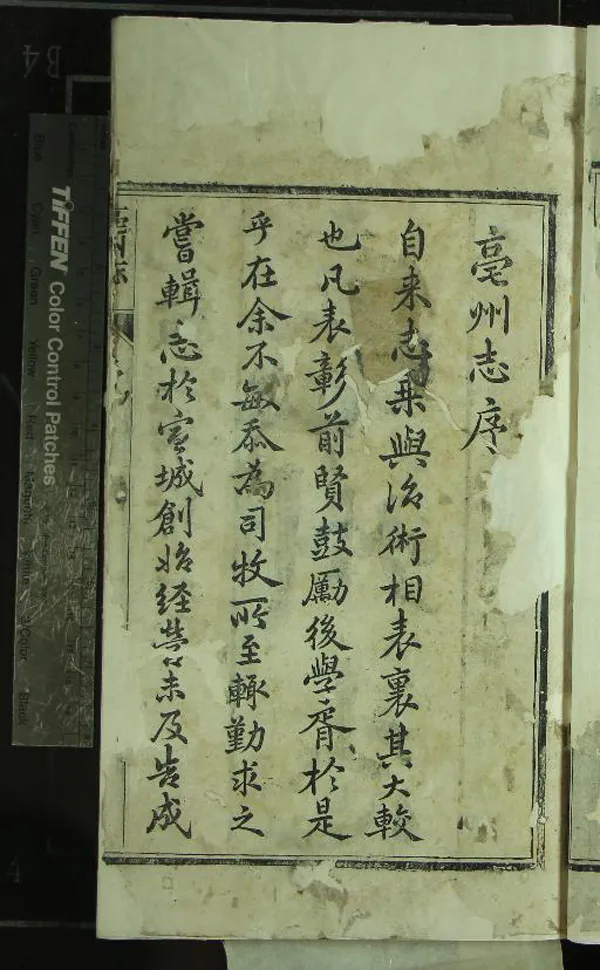 亳州志序
自来志乗與治術相表裏其大較
也凡表彰前賢鼓勵後學胥於是
乎在余不敏忝為司牧所至輙勤求之
嘗輯志於宣城創始経營未及告成
TIFFEN Color Control Patches
Blue
Cyan
Green
Yellow
Red
Magenta
Black
B4
4